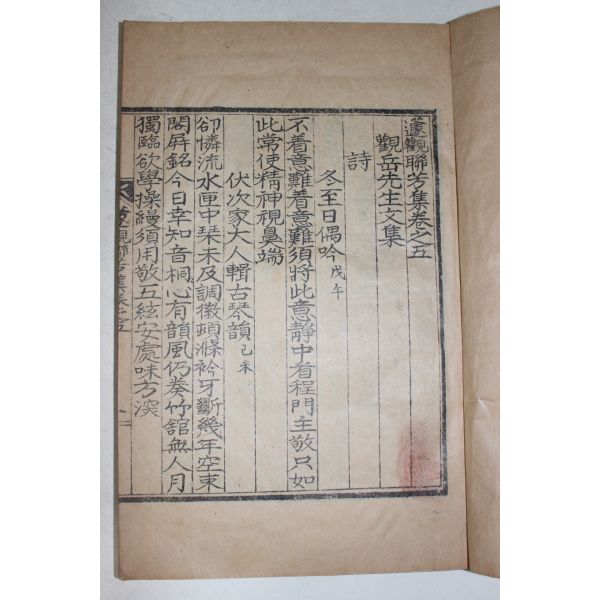 蘧觀聯芳集卷之五
觀岳先生文集
詩
冬至日偶吟 戊午
不着意難着意難須將此意靜中看程門主敬只如
此常使精神視鼻端
伏次家大人輯古琴韻 己未
却憐流水匣中琹未及調徽頓滌衿牙斷幾年空束
閣屛銘今日幸知音桐心有韻風仍奏竹舘無人月
獨臨欲學操縵須用敬五絃安處味方深